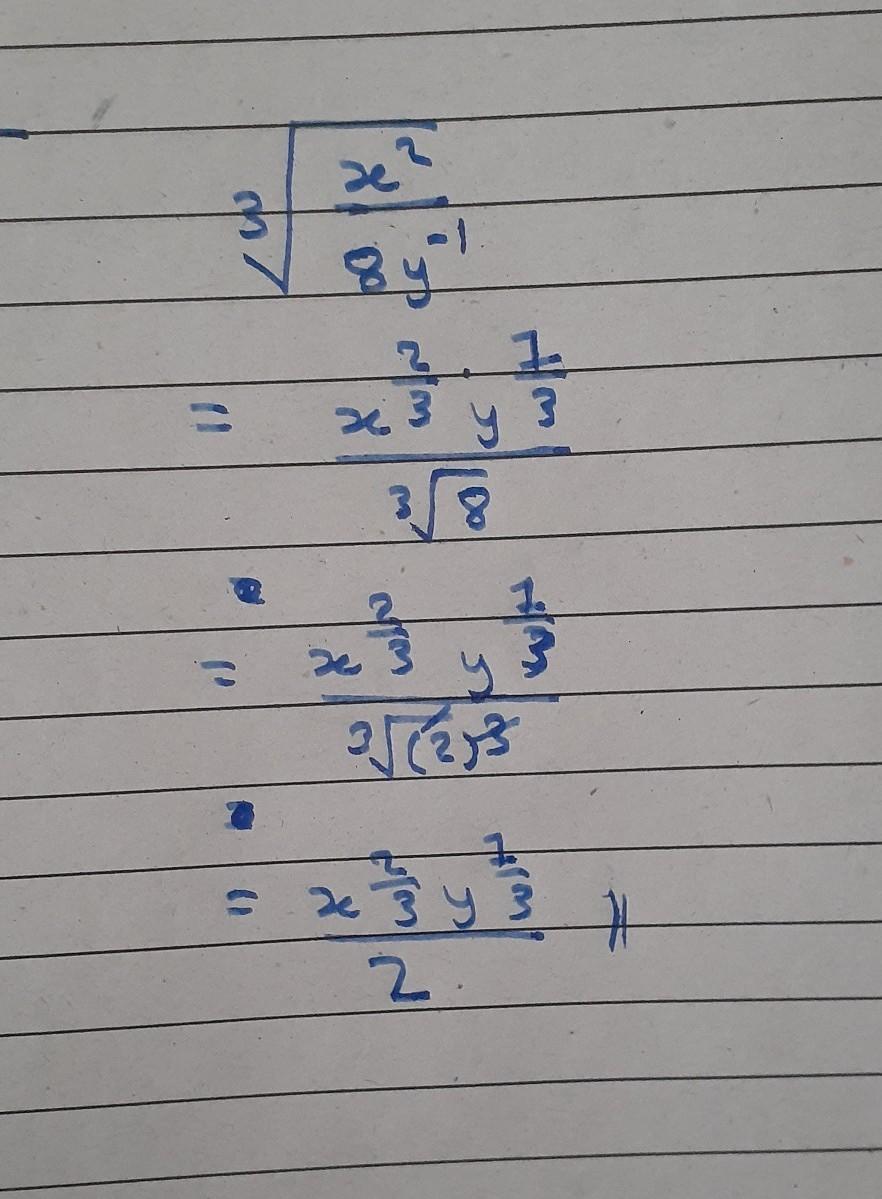 ∛(x²/(8y⁻¹))
= (x^(2/3) · y^(1/3))/∛8
= (x^(2/3) y^(1/3))/∛((2)³)
= (x^(2/3) y^(1/3))/2 //